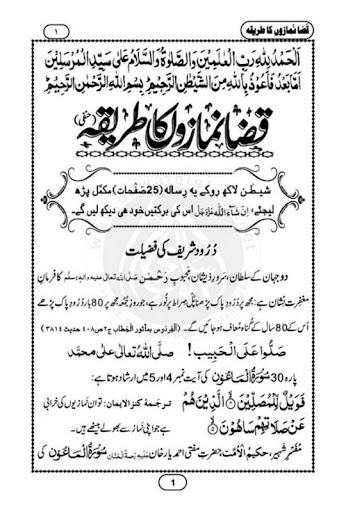 قضا نمازوں کا طریقہ
۱
اَلْحَمْدُ لِلّٰہِ رَبِّ الْعٰلَمِیْنَ وَالصَّلٰوۃُ وَالسَّلَامُ عَلٰی سَیِّدِ الْمُرْسَلِیْنَ
اَمَّا بَعْدُ فَاَعُوْذُ بِاللّٰہِ مِنَ الشَّیْطٰنِ الرَّجِیْمِ ؕ بِسْمِ اللّٰہِ الرَّحْمٰنِ الرَّحِیْمِ ؕ
قضا نمازوں کا طریقہ (حنفی)
شیطٰن لاکھ روکے یہ رسالہ (25 صَفْحات) مکمَّل پڑھ
لیجئے، اِنْ شَآءَ اللّٰہ عَزَّوَجَلَّ اس کی بَرَکتیں خود ہی دیکھ لیں گے۔
دُرُود شریف کی فضیلت
دو جہان کے سلطان، سرورِ ذیشان، محبوبِ رَحمٰن صلَّی اللہ تعالٰی علیہ واٰلہٖ وسلَّم کا فرمانِ
مغفِرت نشان ہے: مجھ پر دُرُودِ پاک پڑھنا پُل صراط پر نور ہے، جو روزِ جُمُعہ مجھ پر 80 بار دُرُودِ پاک پڑھے
اُس کے 80 سال کے گناہ مُعاف ہو جائیں گے۔ (اَلْفِردَوس بمأثور الْخِطاب ج۲ ص۴۰۸ حدیث ۳۸۱۴)
صَلُّوْا عَلَی الْحَبِیْب! صلَّی اللہُ تعالٰی علٰی محمَّد
پارہ 30 سُوْرَۃُ الْمَاعُوْن کی آیت نمبر 4 اور 5 میں ارشاد ہوتا ہے:
فَوَیْلٌ لِّلْمُصَلِّیْنَ ۙ﴿۴﴾ الَّذِیْنَ هُمْ ترجَمۂ کنز الایمان: تو ان نمازیوں کی خرابی
عَنْ صَلَاتِهِمْ سَاهُوْنَ ۙ﴿۵﴾ ہے جو اپنی نماز سے بھولے بیٹھے ہیں۔
مُفَسّرِ شہیر، حکیمُ الْاُمَّت، حضرتِ مفتی احمد یار خان علیہ رحمۃ الحنّان سُوْرَۃُ الْمَاعُوْن کی
1